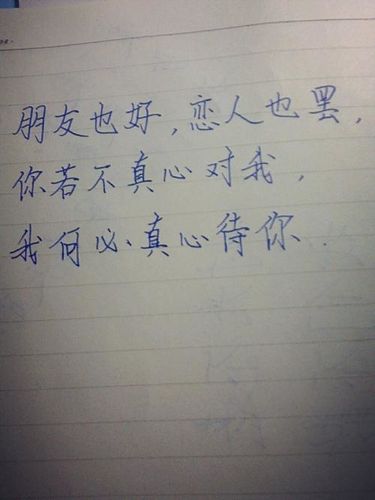 朋友也好,恋人也罢,
你若不真心对我,
我何必真心待你.